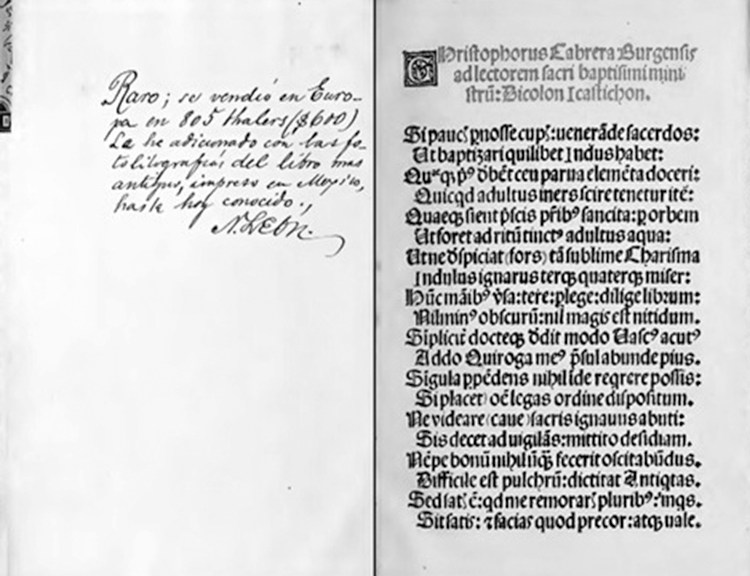 Raro; se vendió en Euro-
pa en 805 thalers ($600)
Le he adicionado con las fo-
tolitografias del libro mas
antiguo, impreso en Mexico,
hasta hoy conocido.,
N. LEON.
Christophorus Cabrera Burgensis
ad lectorem sacri baptismi mini
strũ: Dicolon Icastichon.
Si paucꝭ ꝑnosse cupꝭ: venerãde sacerdos:
Ut baptizari quilibet Indus habet:
Quꝫ qꝫ pꝰ đbẽt ceu parua elemẽta doceri:
Quicqd adultus iners scire tenetur itẽ:
Quaeqꝫ sient pscis pr̃ibꝰ sancita: ꝑ orbem
Ut foret ad ritũ tinctꝰ adultus aqua:
Ut ne đspiciat (fors) tã sublime Charisma
Indulus ignarus terqꝫ quaterqꝫ miser:
Hũc mãibꝰ v̓sa: tere: ꝑlege: dilige librum:
Nil minꝰ obscurũ: nil magis est nitidum.
Simplicit̃ docteqꝫ đdit modo Uascꝰ acutꝰ
Addo Quiroga meꝰ p̃sul abunde pius.
Sigula ꝑpẽdens nihil ĩde reqrere possis:
Si placet) oẽ legas ordine dispositum.
Ne videare (caue) sacris ignauus abuti:
Sis decet ad uigilãs: mittito desidiam.
Nẽpe bonũ nihil ũqꝫ fecerit oscitabũdus.
Difficile est pulchrũ: dictitat Antiqtas.
Sed satꝭ ẽ: qd me remorarꝭ pluribꝰ: inqs.
Sit satis: ⁊ facias quod precor: atqꝫ uale.